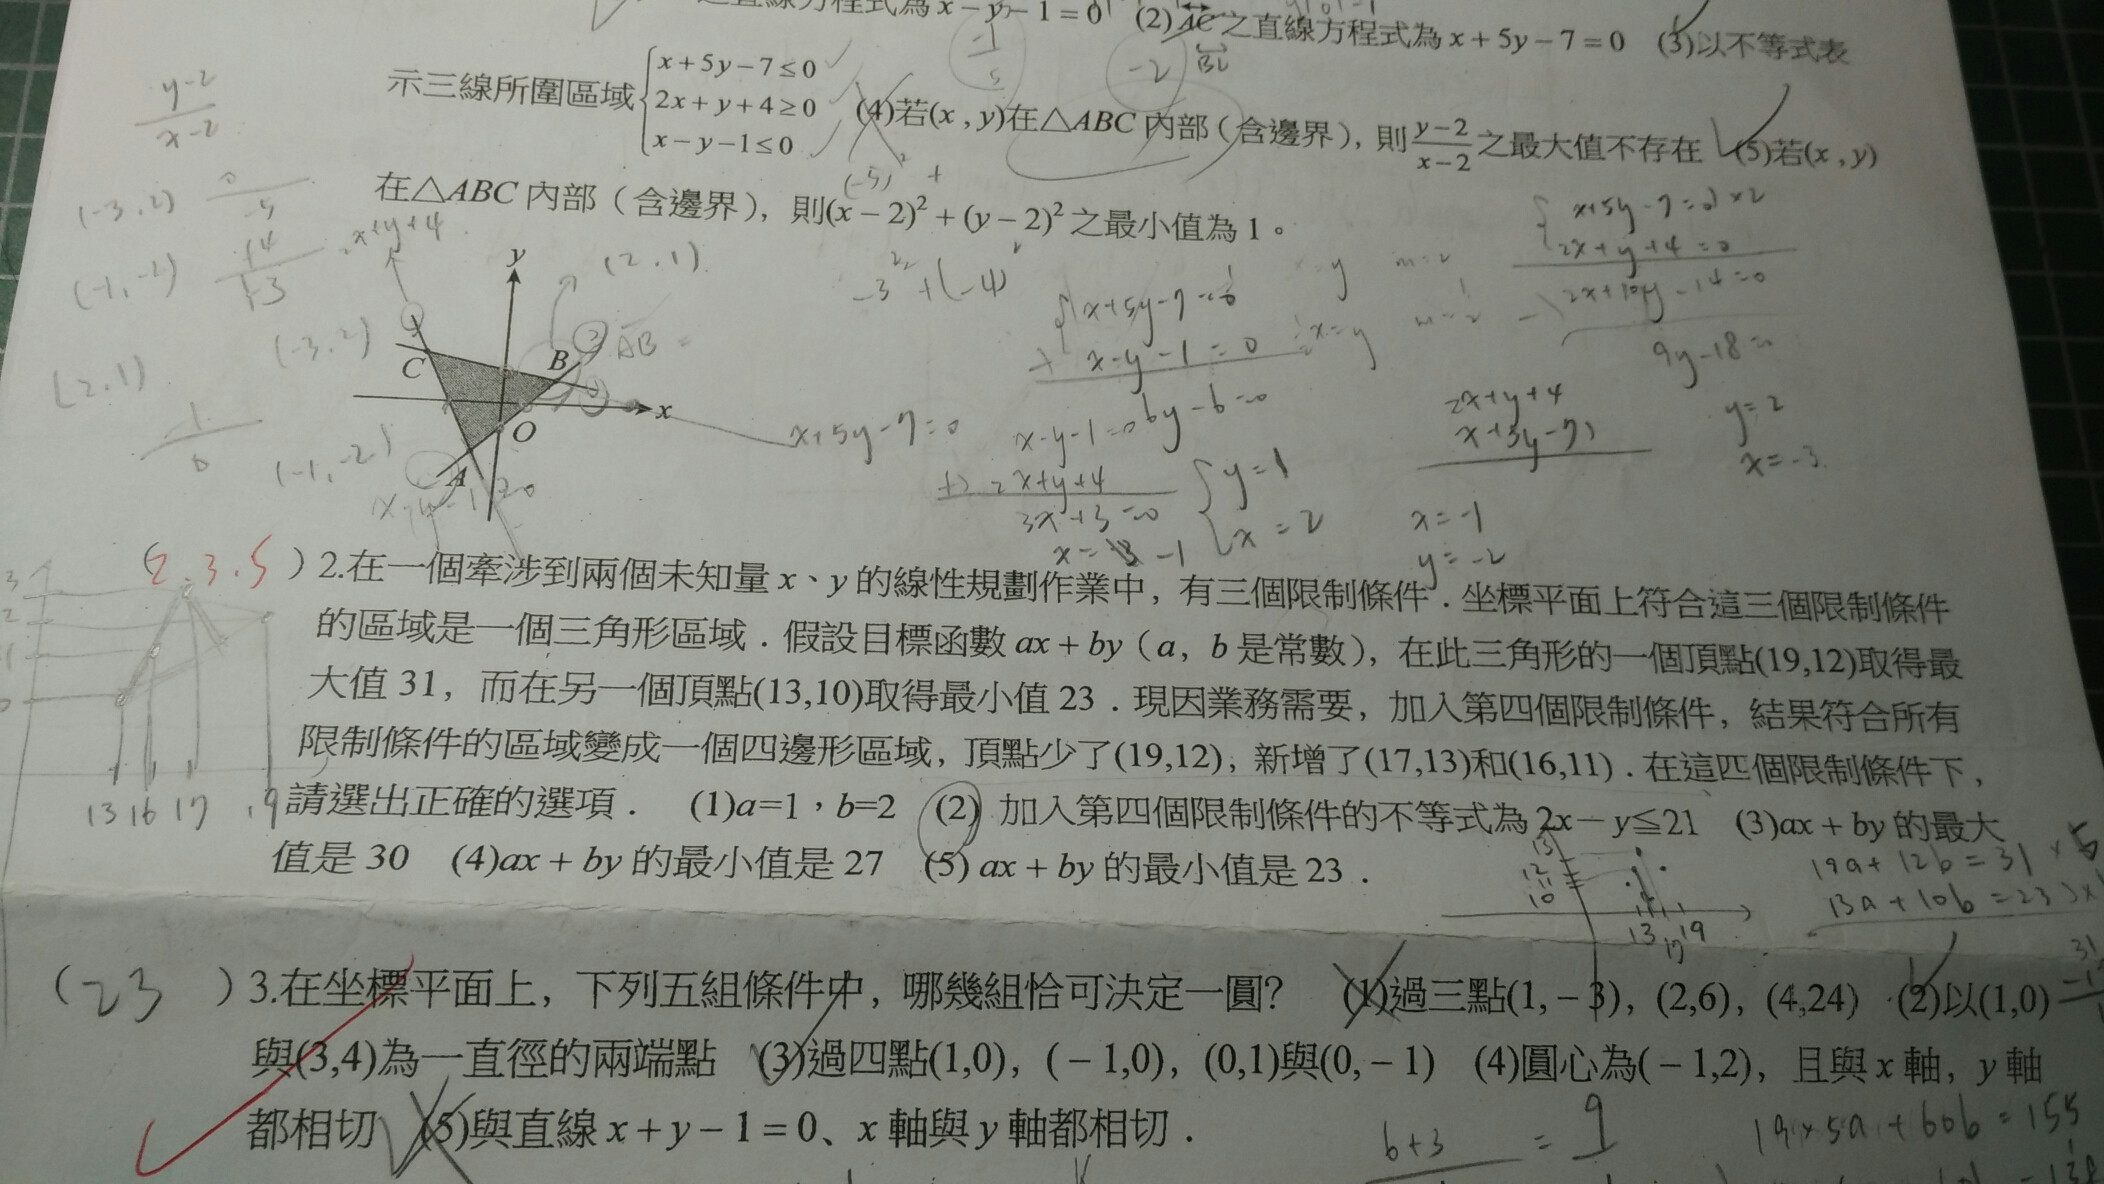 之直線方程式為 x－y－1＝0 (2) AC 之直線方程式為 x＋5y－7＝0 (3)以不等式表
示三線所圍區域{x＋5y－7≤0
2x＋y＋4≥0
x－y－1≤0
(4)若(x , y)在△ABC 內部（含邊界），則 y－2/x－2 之最大值不存在 (5)若(x , y)
在△ABC 內部（含邊界），則(x－2)²＋(y－2)² 之最小值為 1。
y-2
x-2
(-3,2) 0
-5
(-1,-2)
(2,1)
-1
0
(-3,2)
(-1,-2)
(2,1)
y
C
B
x
O
A
AB =
x+5y-7=0
x-y-1=0
6y-6=0
x-y-1=0
2x+y+4
3x+3=0
y=1
x=2
x+5y-7=0)×2
2x+y+4=0
2x+10y-14=0
9y-18=0
y=2
x=-3
2x+y+4
x=-1
y=-2
(2.3.5)2.在一個牽涉到兩個未知量 x、y 的線性規劃作業中，有三個限制條件．坐標平面上符合這三個限制條件
的區域是一個三角形區域．假設目標函數 ax＋by（a，b 是常數），在此三角形的一個頂點(19,12)取得最
大值 31，而在另一個頂點(13,10)取得最小值 23．現因業務需要，加入第四個限制條件，結果符合所有
限制條件的區域變成一個四邊形區域，頂點少了(19,12)，新增了(17,13)和(16,11)．在這四個限制條件下，
請選出正確的選項． (1)a=1，b=2 (2) 加入第四個限制條件的不等式為 2x－y≦21 (3)ax＋by 的最大
值是 30 (4)ax＋by 的最小值是 27 (5) ax＋by 的最小值是 23．
13 16 17 19
13
12
11
10
13 17 19
19a+12b=31 ×5
13a+10b=23
(23)3.在坐標平面上，下列五組條件中，哪幾組恰可決定一圓？ (1)過三點(1,－3)，(2,6)，(4,24) (2)以(1,0)
與(3,4)為一直徑的兩端點 (3)過四點(1,0)，(－1,0)，(0,1)與(0,－1) (4)圓心為(－1,2)，且與 x 軸，y 軸
都相切 (5)與直線 x＋y－1＝0、x 軸與 y 軸都相切．
b+3 = 9
19×5a+60b=155